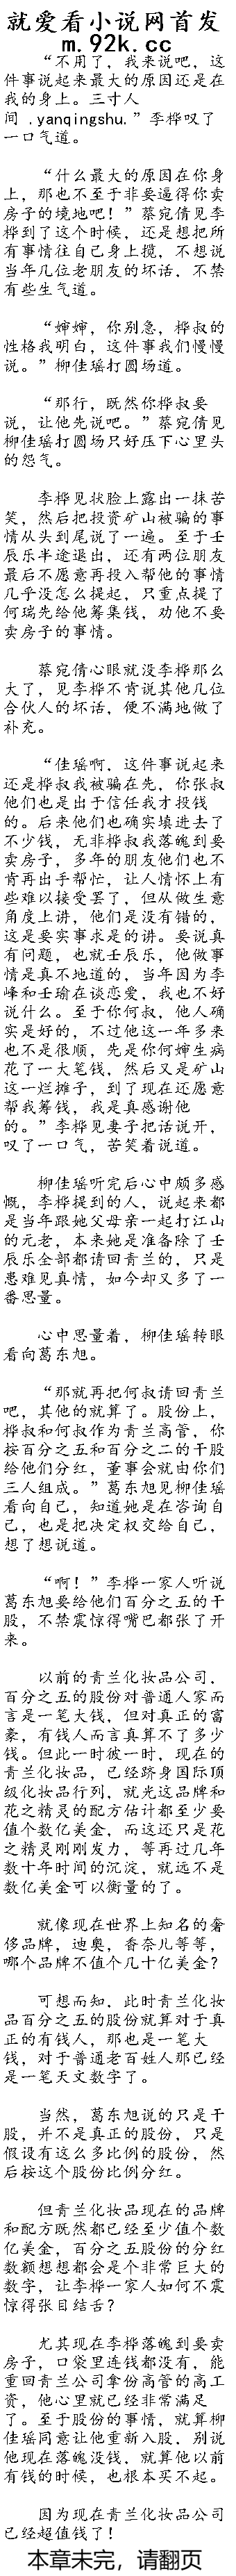 就爱看小说网首发
m.92k.cc
“不用了，我来说吧，这
件事说起来最大的原因还是在
我的身上。三寸人
间 .yanqingshu.”李桦叹了
一口气道。
“什么最大的原因在你身
上，那也不至于非要逼得你卖
房子的境地吧！”蔡宛倩见李
桦到了这个时候，还是想把所
有事情往自己身上揽，不想说
当年几位老朋友的坏话，不禁
有些生气道。
“婶婶，你别急，桦叔的
性格我明白，这件事我们慢慢
说。”柳佳瑶打圆场道。
“那行，既然你桦叔要
说，让他先说吧。”蔡宛倩见
柳佳瑶打圆场只好压下心里头
的怨气。
李桦见状脸上露出一抹苦
笑，然后把投资矿山被骗的事
情从头到尾说了一遍。至于壬
辰乐半途退出，还有两位朋友
最后不愿意再投入帮他的事情
几乎没怎么提起，只重点提了
何瑞先给他筹集钱，劝他不要
卖房子的事情。
蔡宛倩心眼就没李桦那么
大了，见李桦不肯说其他几位
合伙人的坏话，便不满地做了
补充。
“佳瑶啊，这件事说起来
还是桦叔我被骗在先，你张叔
他们也是出于信任我才投钱
的。后来他们也确实填进去了
不少钱，无非桦叔我落魄到要
卖房子，多年的朋友他们也不
肯再出手帮忙，让人情怀上有
些难以接受罢了，但从做生意
角度上讲，他们是没有错的，
这是要实事求是的讲。要说真
有问题，也就壬辰乐，他做事
情是真不地道的，当年因为李
峰和壬瑜在谈恋爱，我也不好
说什么。至于你何叔，他人确
实是好的，不过他这一年多来
也不是很顺，先是你何婶生病
花了一大笔钱，然后又是矿山
这一烂摊子，到了现在还愿意
帮我筹钱，我是真感谢他
的。”李桦见妻子把话说开，
叹了一口气，苦笑着说道。
柳佳瑶听完后心中颇多感
慨，李桦提到的人，说起来都
是当年跟她父母亲一起打江山
的元老，本来她是准备除了壬
辰乐全部都请回青兰的，只是
患难见真情，如今却又多了一
番思量。
心中思量着，柳佳瑶转眼
看向葛东旭。
“那就再把何叔请回青兰
吧，其他的就算了。股份上，
桦叔和何叔作为青兰高管，你
按百分之五和百分之二的干股
给他们分红，董事会就由你们
三人组成。”葛东旭见柳佳瑶
看向自己，知道她是在咨询自
己，也是把决定权交给自己，
想了想说道。
“啊！”李桦一家人听说
葛东旭要给他们百分之五的干
股，不禁震惊得嘴巴都张了开
来。
以前的青兰化妆品公司，
百分之五的股份对普通人家而
言是一笔大钱，但对真正的富
豪，有钱人而言真算不了多少
钱。但此一时彼一时，现在的
青兰化妆品，已经跻身国际顶
级化妆品行列，就光这品牌和
花之精灵的配方估计都至少要
值个数亿美金，而这还只是花
之精灵刚刚发力，等再过几年
数十年时间的沉淀，就远不是
数亿美金可以衡量的了。
就像现在世界上知名的奢
侈品牌，迪奥，香奈儿等等，
哪个品牌不值个几十亿美金？
可想而知，此时青兰化妆
品百分之五的股份就算对于真
正的有钱人，那也是一笔大
钱，对于普通老百姓人那已经
是一笔天文数字了。
当然，葛东旭说的只是干
股，并不是真正的股份，只是
假设有这么多比例的股份，然
后按这个股份比例分红。
但青兰化妆品现在的品牌
和配方既然都已经至少值个数
亿美金，百分之五股份的分红
数额想想都会是个非常巨大的
数字，让李桦一家人如何不震
惊得张目结舌？
尤其现在李桦落魄到要卖
房子，口袋里连钱都没有，能
重回青兰公司拿份高管的高工
资，他心里就已经非常满足
了。至于股份的事情，就算柳
佳瑶同意让他重新入股，别说
他现在落魄没钱，就算他以前
有钱的时候，也根本买不起。
因为现在青兰化妆品公司
已经超值钱了！
本章未完，请翻页